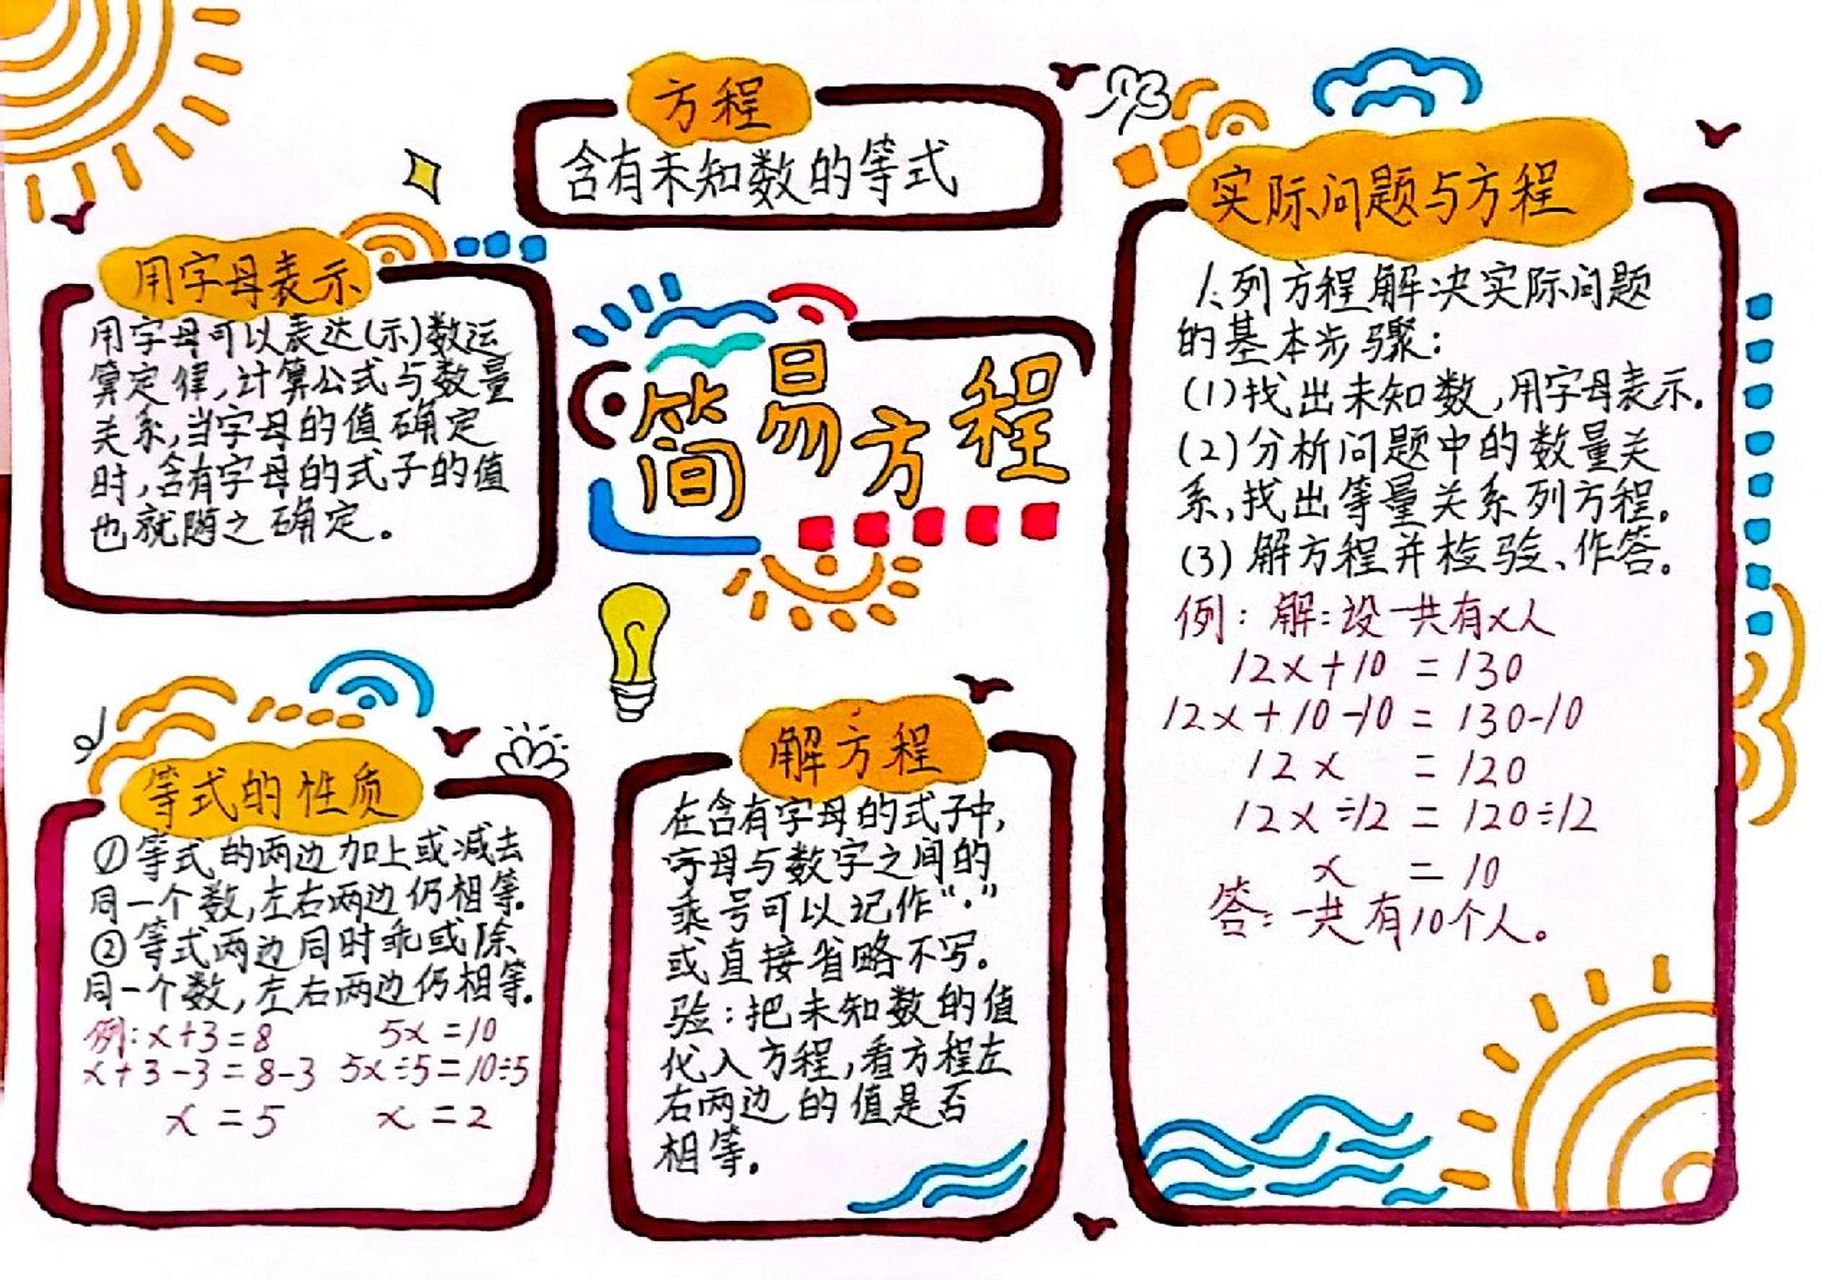 方程
含有未知数的等式
用字母表示
用字母可以表达(示)数运
算定律,计算公式与数量
关系,当字母的值确定
时,含有字母的式子的值
也就随之确定。
简易方程
等式的性质
①等式的两边加上或减去
同一个数,左右两边仍相等.
②等式两边同时乘或除
同一个数,左右两边仍相等.
例:x+3=8 5x=10
x+3-3=8-3 5x÷5=10÷5
x=5 x=2
解方程
在含有字母的式子中,
字母与数字之间的
乘号可以记作“·”
或直接省略不写。
验:把未知数的值
代入方程,看方程左
右两边的值是否
相等。
实际问题与方程
1、列方程解决实际问题
的基本步骤:
(1)找出未知数,用字母表示.
(2)分析问题中的数量关
系,找出等量关系列方程。
(3)解方程并检验、作答。
例:解:设一共有x人
12x+10=130
12x+10-10=130-10
12x=120
12x÷12=120÷12
x=10
答:一共有10个人。